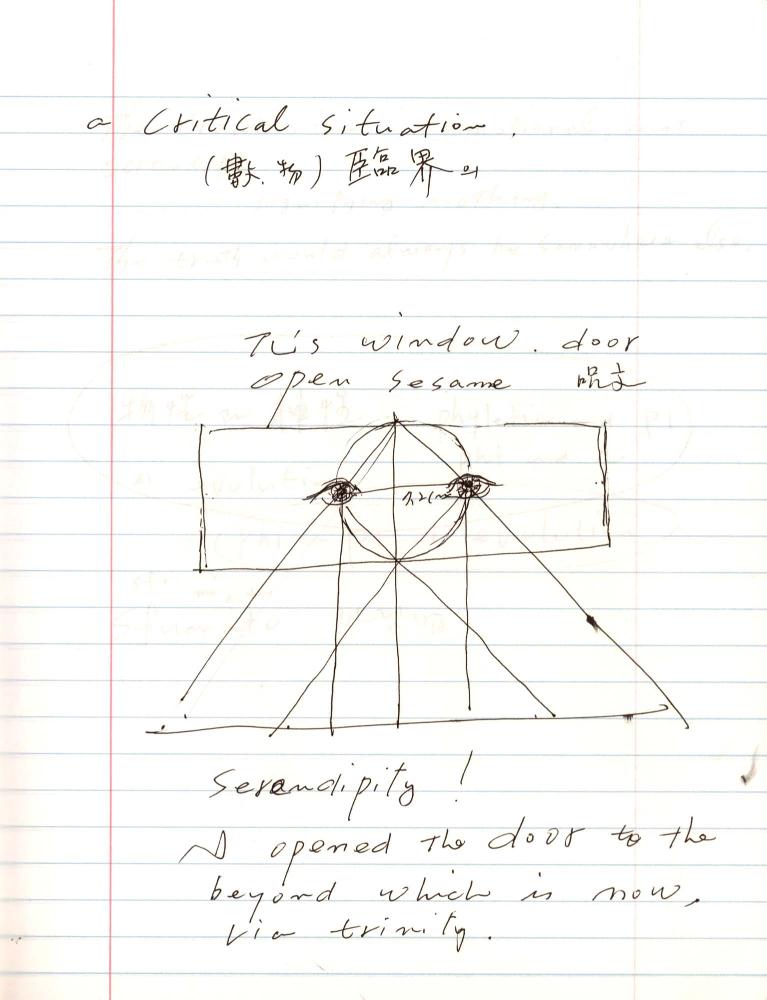 a Critical situation.
(數.物) 臨界의
window. door
open sesame 呪文
Serendipity!
opened the door to the
beyond which is now,
via trinity.